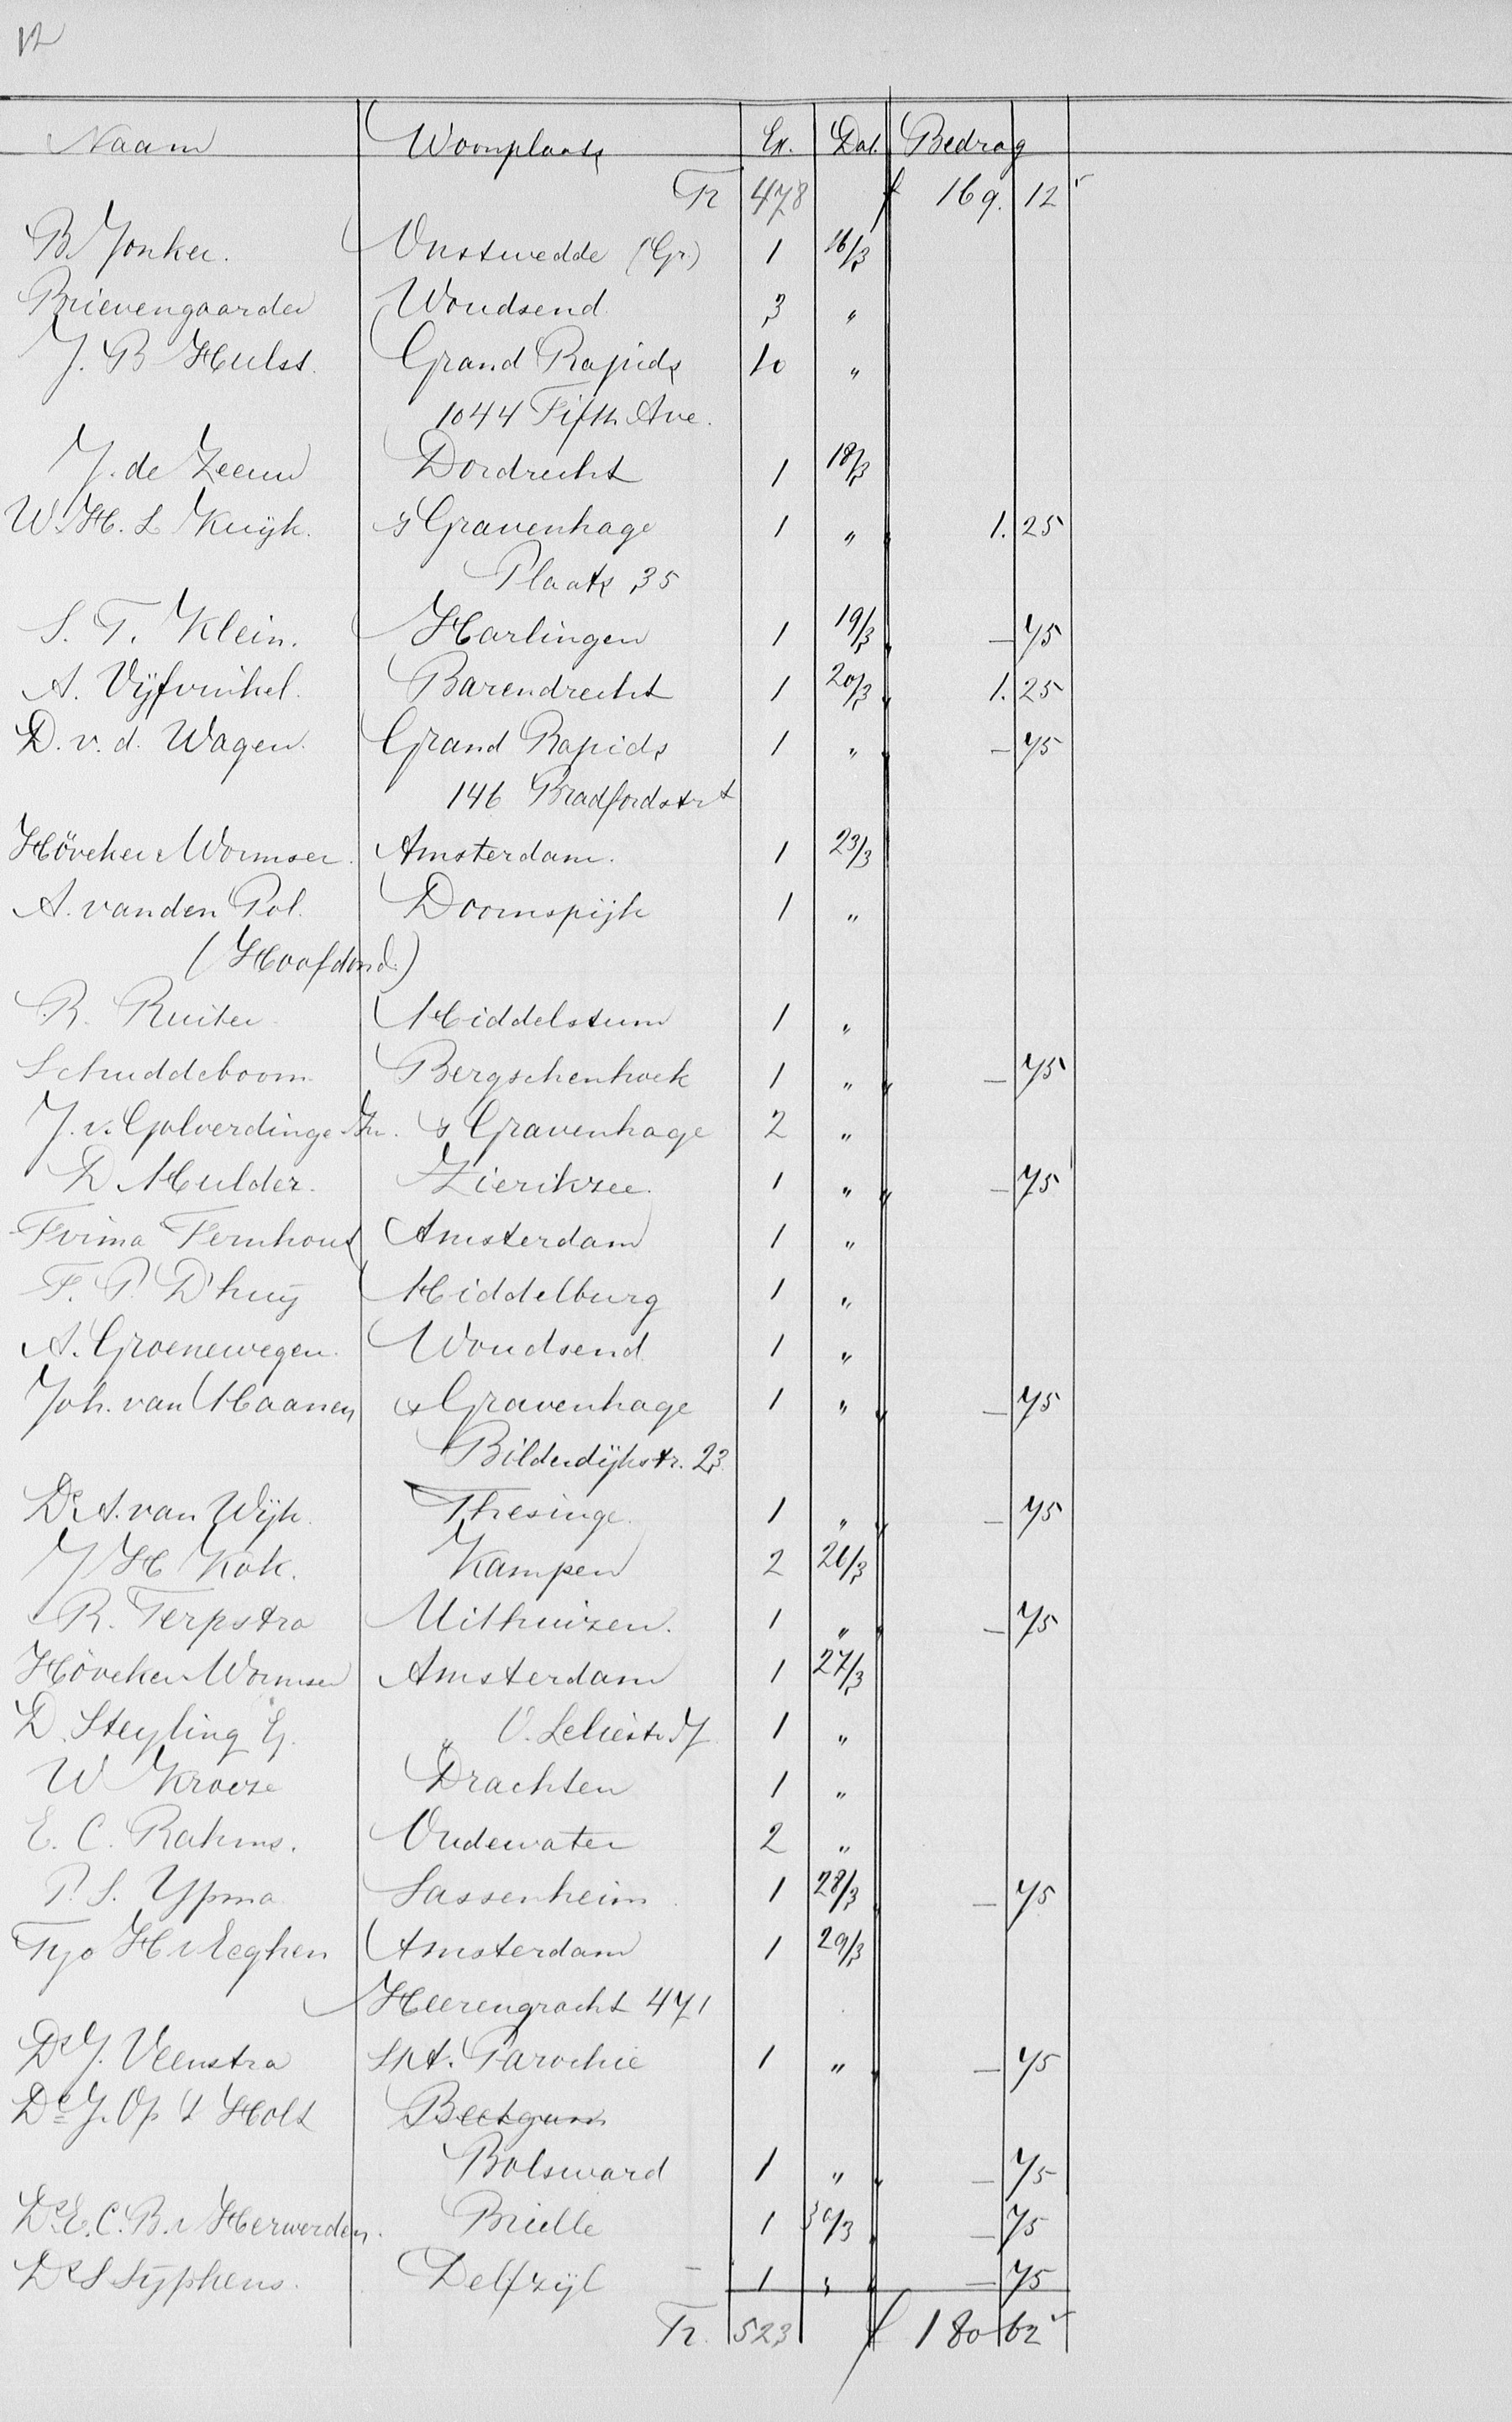 12
Naam Woonplaats Ex. Dat. Bedrag
Tr 478 f 169. 12⁵
B. Jonker. Onstwedde (Gr.) 1 16/3
Brievengaarder Woudsend 3 "
J. B Hulst. Grand Rapids 10 "
1044 Fifth Ave.
J. de Zeeuw Dordrecht 1 18/3
W. H. L Kuyk. s Gravenhage 1 " " 1. 25
Plaats 35
S. T. Klein. Harlingen 1 19/3 " — 75
A. Vijfvinkel. Barendrecht 1 20/3 " 1. 25
D. v. d. Wagen. Grand Rapids 1 " " — 75
146 Bradfordstrt
Höveker & Wormser. Amsterdam. 1 23/3
A. van den Pol. Doornspijk 1 "
(Hoofdond.)
R. Ruiter Middelstum 1 "
Schuddeboom Bergschenhoek 1 " " — 75
J. v. Golverdinge Jzn. s Gravenhage 2 "
D Mulder. Zierikzee. 1 " " — 75
Firma Fernhout Amsterdam 1 "
F. P. D'huy Middelburg 1 "
A. Groenewegen. Woudsend 1 "
Joh. van Haanen s Gravenhage 1 " " — 75
Bilderdijkstr. 23.
Ds A. van Wijk. Thesinge. 1 " " — 75
J H Kok. Kampen 2 26/3
R. Terpstra Uithuizen. 1 " " — 75
Höveker Wormser Amsterdam 1 27/3
D. Steyling " 1 "
W Kroeze Drachten 1 "
E. C. Rahms. Oudewater 2 "
P. S. Ypma Sassenheim 1 28/3 " — 75
H v Eeghen Amsterdam 1 29/3
Heerengracht 471
Ds J. Veenstra Snt. Parochie 1 " " — 75
Ds J. Op 't Holt Beetgum
Bolsward 1 " " — 75
Ds E. C. B. v Herwerden. Brielle 1 30/3 " — 75
Ds S Sypkens. Delfzijl 1 " " — 75
Tr. 523 f 180 62⁵